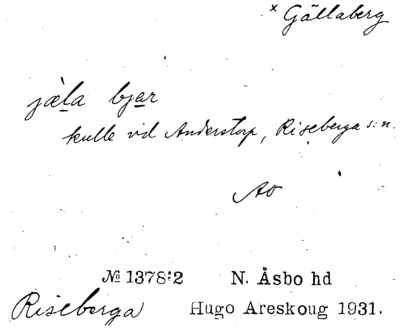 x Gällaberg
jæ̀la bjar
kulle vid Anderstorp, Riseberga s:n.
Ao
№ 1378:2 N. Åsbo hd
Riseberga Hugo Areskoug 1931.